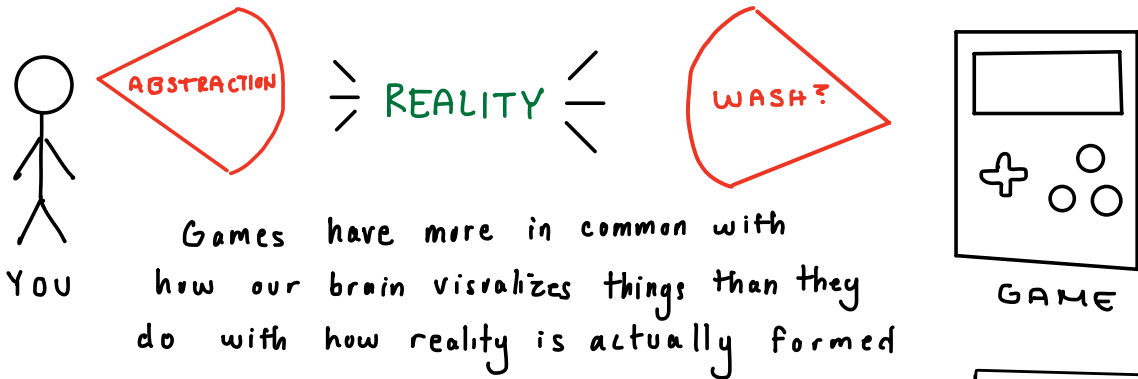 ABSTRACTION
REALITY
WASH?
YOU
GAME
Games have more in common with
how our brain visualizes things than they
do with how reality is actually formed